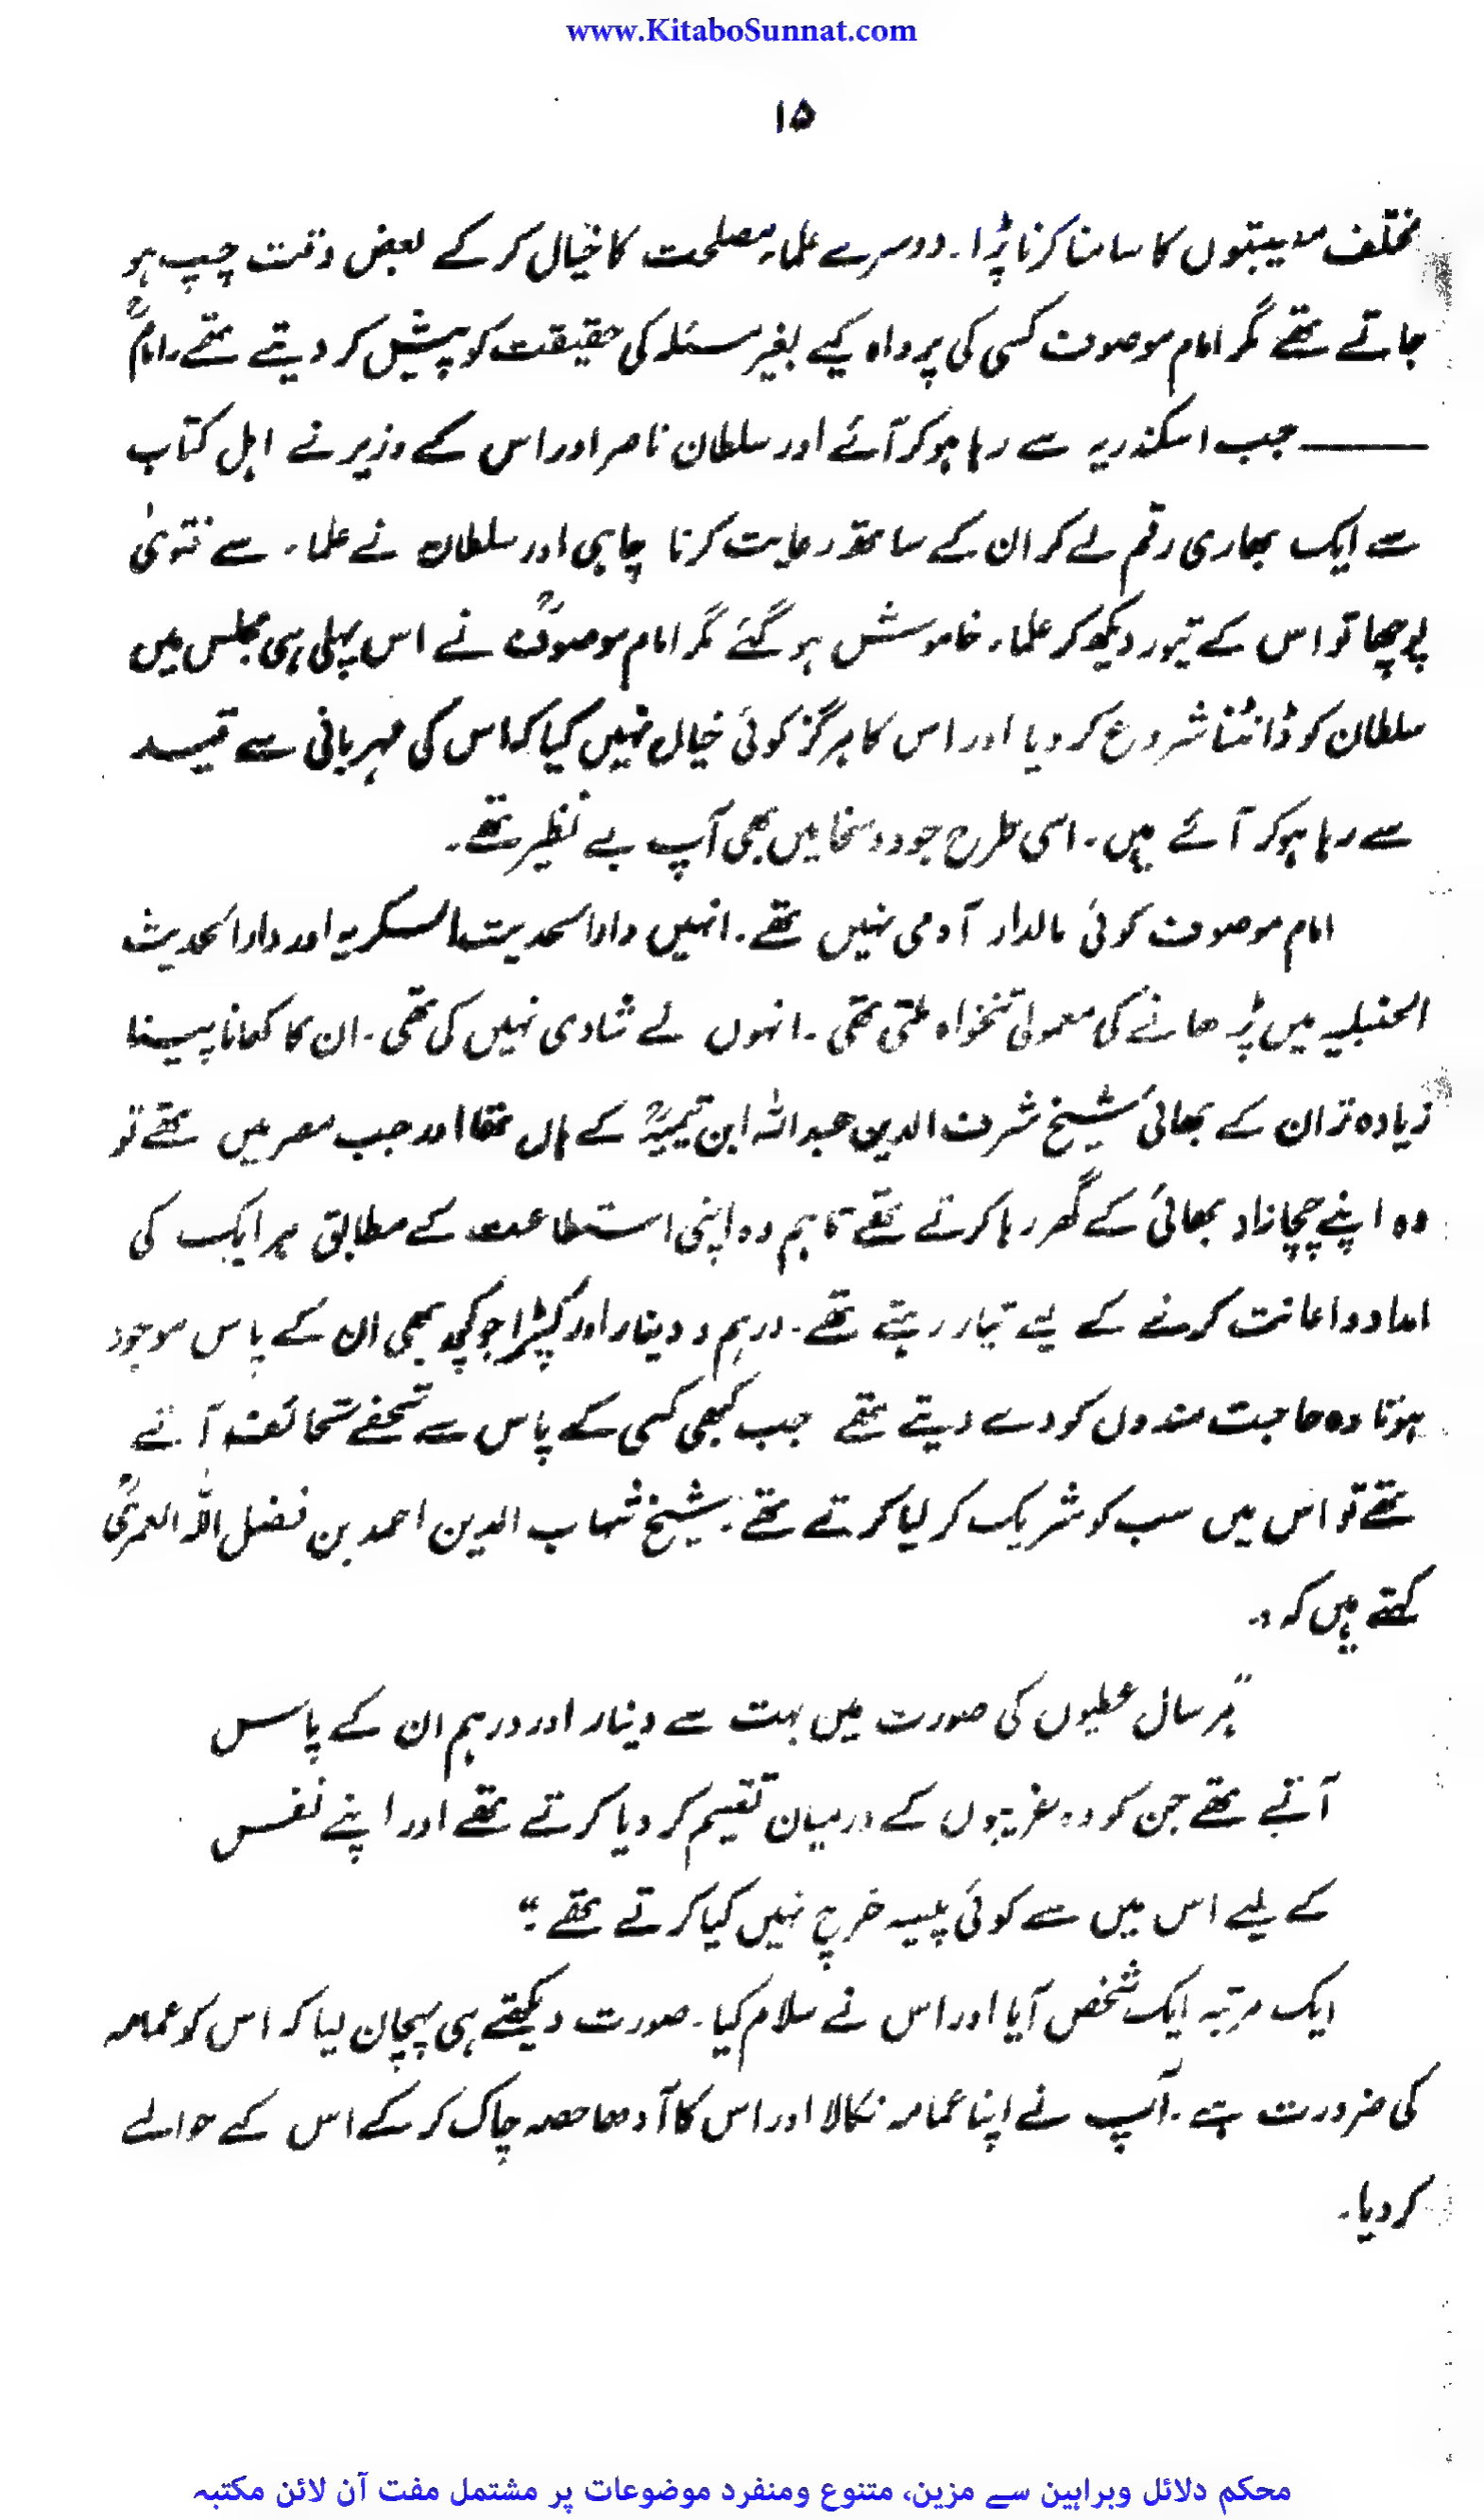 www.KitaboSunnat.com
۱۵
مختلف مصیبتوں کا سامنا کرنا پڑا۔ دوسرے علماء مصلحت کا خیال کر کے بعض وقت چپ ہو
جاتے تھے مگر امام موصوف کسی کی پرواہ کیے بغیر مسئلہ کی حقیقت کو پیش کر دیتے تھے۔ امامؒ
——— جب اسکندریہ سے رہا ہو کر آئے اور سلطان ناصر اور اس کے وزیر نے اہل کتاب
سے ایک بھاری رقم لے کر ان کے ساتھ رعایت کرنا چاہی اور سلطان نے علماء سے فتویٰ
پوچھا تو اس کے تیور دیکھ کر علماء خاموش ہو گئے مگر امام موصوفؒ نے اس پہلی ہی مجلس میں
سلطان کو ڈانٹنا شروع کر دیا اور اس کا ہرگز کوئی خیال نہیں کیا کہ اس کی مہربانی سے قید
سے رہا ہو کر آئے ہیں۔ اسی طرح جود و سخا میں بھی آپ بے نظیر تھے۔
امام موصوف کوئی مالدار آدمی نہیں تھے۔ انہیں دارالحدیث السکریہ اور دارالحدیث
الحنبلیہ میں پڑھانے کی معمولی تنخواہ ملتی تھی۔ انہوں نے شادی نہیں کی تھی۔ ان کا کھانا پینا
زیادہ تر ان کے بھائی شیخ شرف الدین عبداللہ ابن تیمیہؒ کے ہاں تھا اور جب مصر میں تھے تو
وہ اپنے چچازاد بھائی کے گھر رہا کرتے تھے تاہم وہ اپنی استطاعت کے مطابق ہر ایک کی
امداد و اعانت کرنے کے لیے تیار رہتے تھے۔ درہم و دینار اور کپڑا جو کچھ بھی ان کے پاس موجود
ہوتا وہ حاجت مندوں کو دے دیتے تھے جب کبھی کسی کے پاس سے تحفے تحائف آتے
تھے تو اس میں سب کو شریک کر لیا کرتے تھے۔ شیخ شہاب الدین احمد بن فضل اللہ العمریؒ
کہتے ہیں کہ :
"ہر سال عطیوں کی صورت میں بہت سے دینار اور درہم ان کے پاس
آتے تھے جن کو وہ غریبوں کے درمیان تقسیم کر دیا کرتے تھے اور اپنے نفس
کے لیے اس میں سے کوئی پیسہ خرچ نہیں کیا کرتے تھے۔"
ایک مرتبہ ایک شخص آیا اور اس نے سلام کیا۔ صورت دیکھتے ہی پہچان لیا کہ اس کو عمامہ
کی ضرورت ہے۔ آپ نے اپنا عمامہ نکالا اور اس کا آدھا حصہ چاک کر کے اس کے حوالے
کر دیا۔
محکم دلائل وبراہین سے مزین، متنوع ومنفرد موضوعات پر مشتمل مفت آن لائن مکتبہ